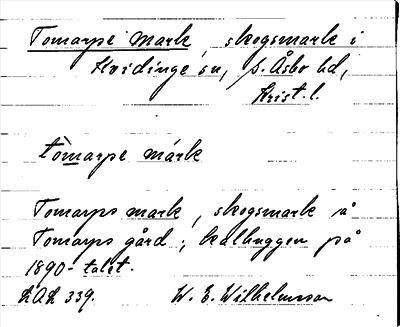 Tomarps mark, skogsmark i
Kvidinge sn, S. Åsbo hd,
Krist. l.
tòmarps márk
Tomarps mark, skogsmark å
Tomarps gård; kalhuggen på
1890-talet.
LAL 339. W. E. Wilhelmsson